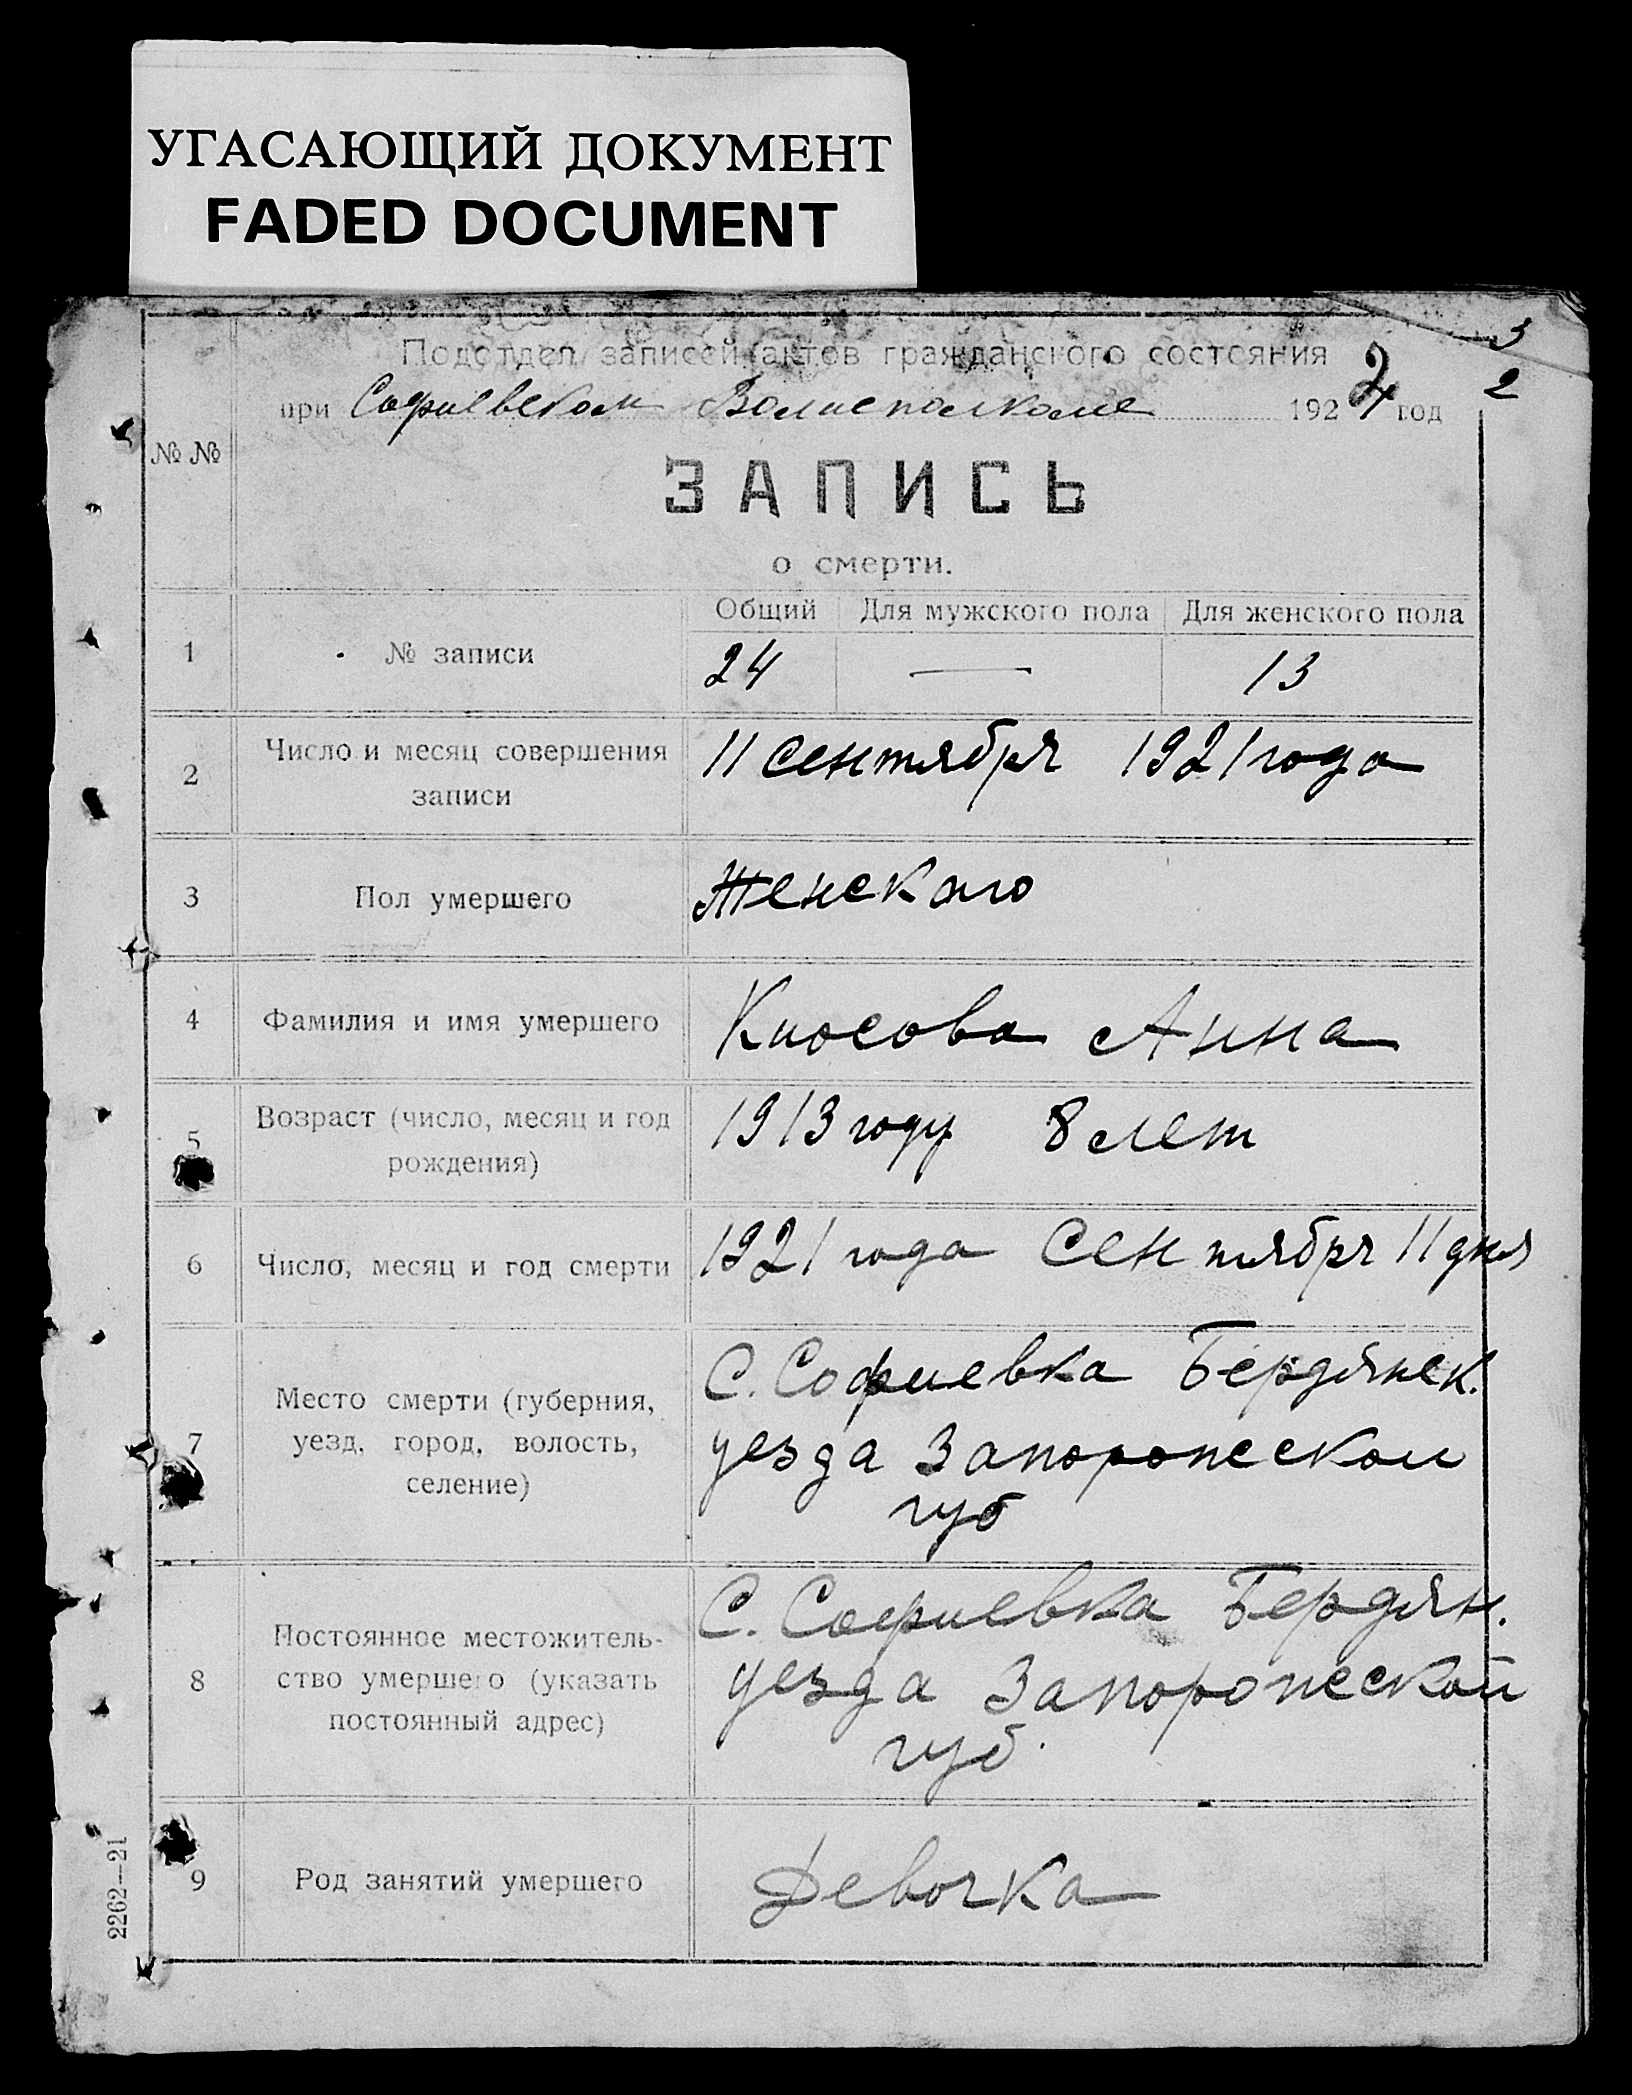 УГАСАЮЩИЙ ДОКУМЕНТ
FADED DOCUMENT
3
2
Подотдел записей актов гражданского состояния
при Софиевском Волисполкоме 192 год
№ №
ЗАПИСЬ
о смерти.
Общий Для мужского пола Для женского пола
1 № записи 24 — 13
2 Число и месяц совершения
записи
11 сентября 1921 года
3 Пол умершего Женскаго
4 Фамилия и имя умершего Кюсова Анна
5 Возраст (число, месяц и год
рождения)
1913 году 8 лет
6 Число, месяц и год смерти 1921 года Сентября 11 дня
7 Место смерти (губерния,
уезд, город, волость,
селение)
С. Софиевка Бердянск.
уезда Запорожской
губ
8 Постоянное местожитель-
ство умершего (указать
постоянный адрес)
С. Софиевка Бердян.
уезда Запорожской
губ.
9 Род занятий умершего Девочка
2262—21